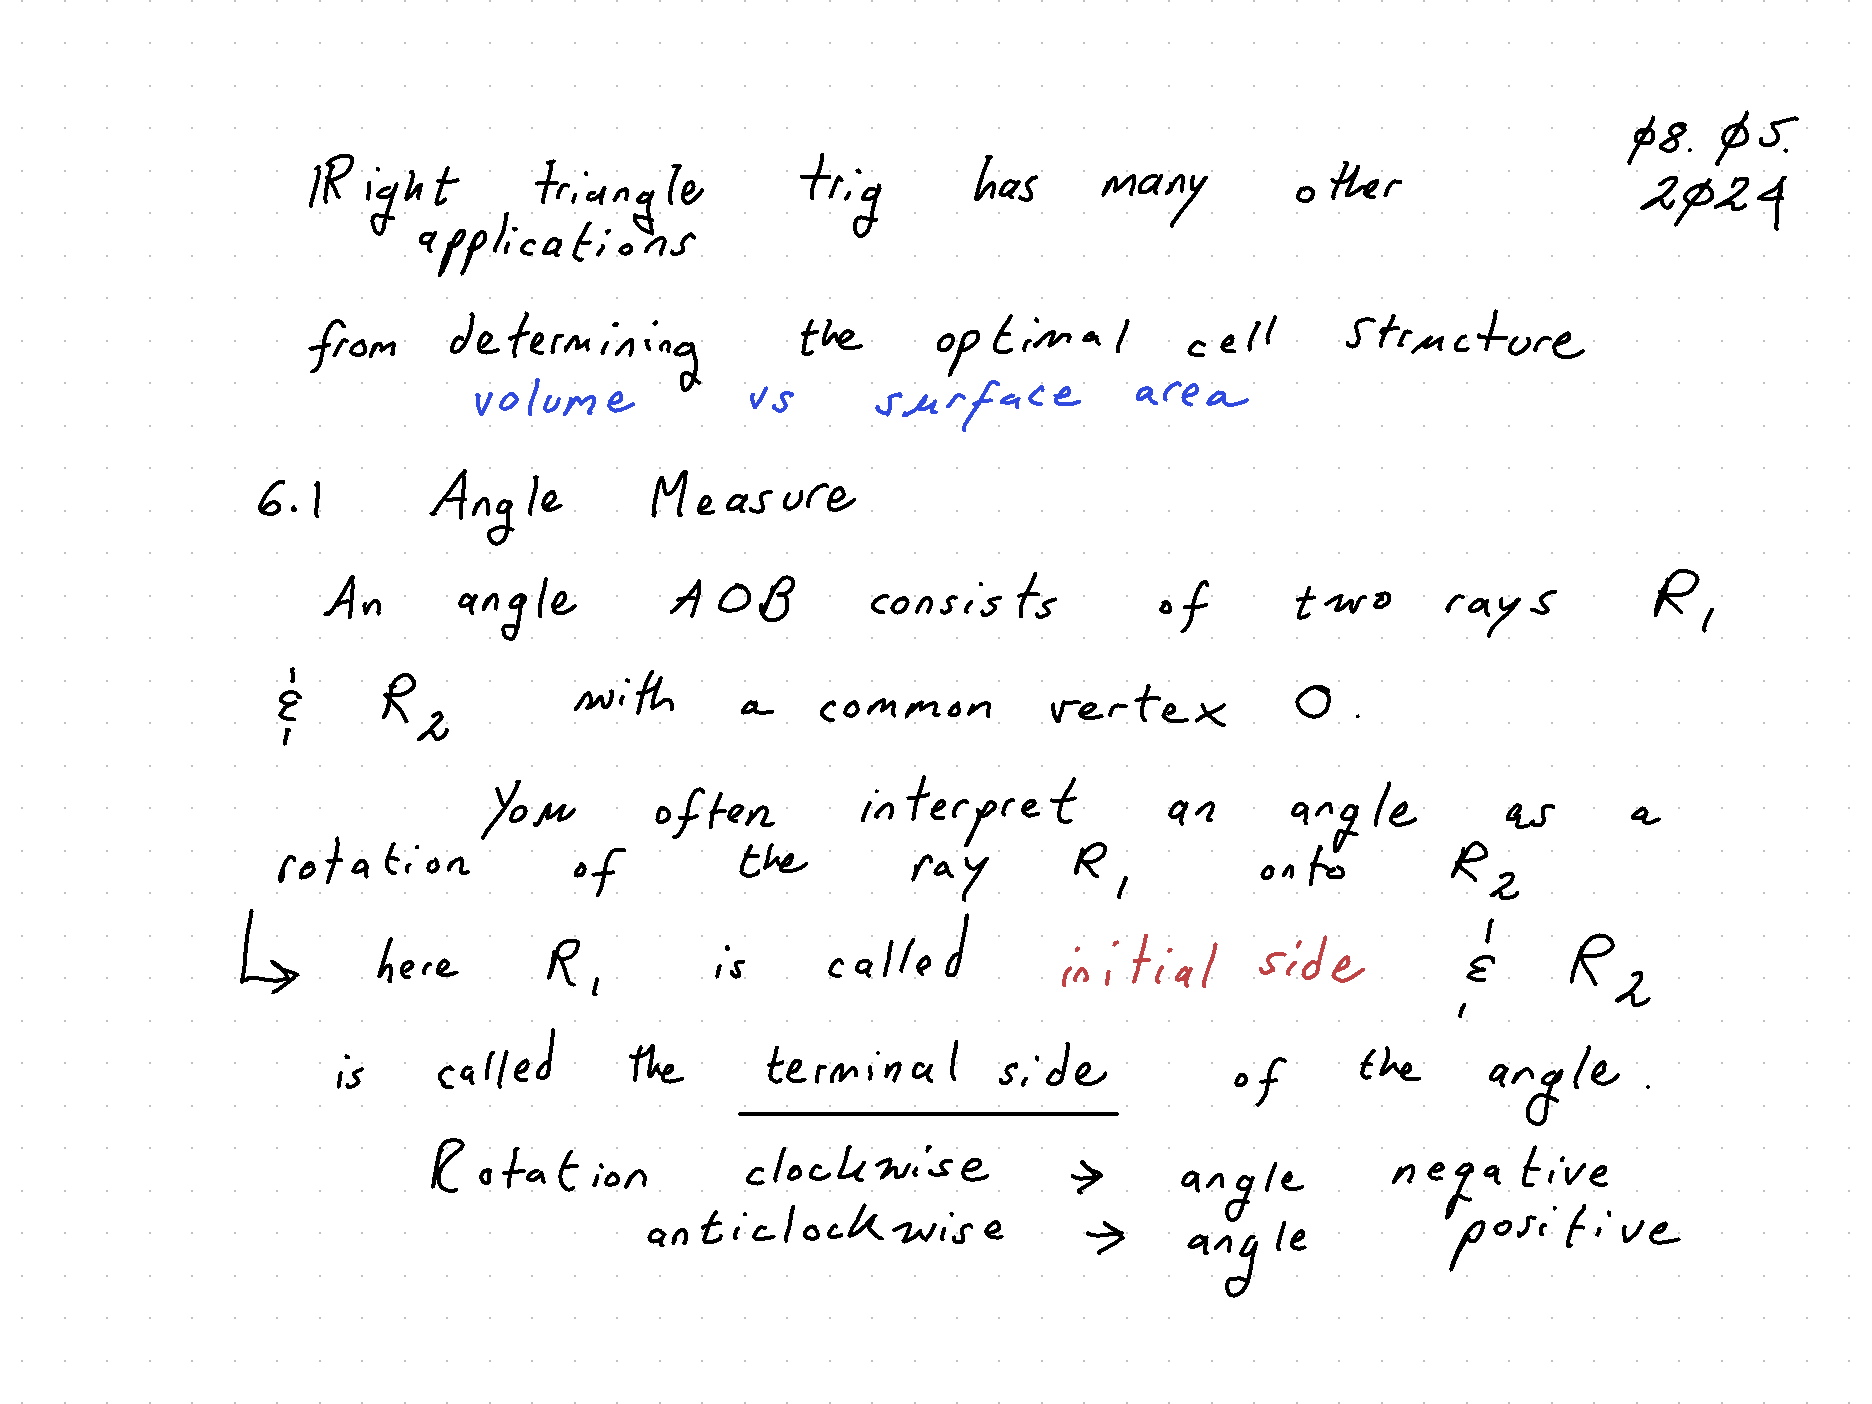 Right triangle trig has many other
applications
ø8. ø5.
2ø24
from determining the optimal cell structure
volume vs surface area
6.1 Angle Measure
An angle AOB consists of two rays R₁
& R₂ with a common vertex O.
You often interpret an angle as a
rotation of the ray R₁ onto R₂
↳ here R₁ is called initial side & R₂
is called the terminal side of the angle.
Rotation clockwise → angle negative
anticlockwise → angle positive